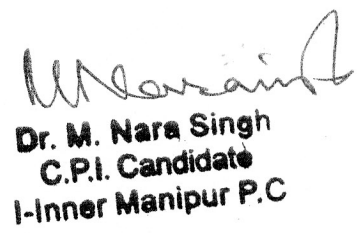 Dr. M. Nara Singh
C.P.I. Candidate
I-Inner Manipur P.C